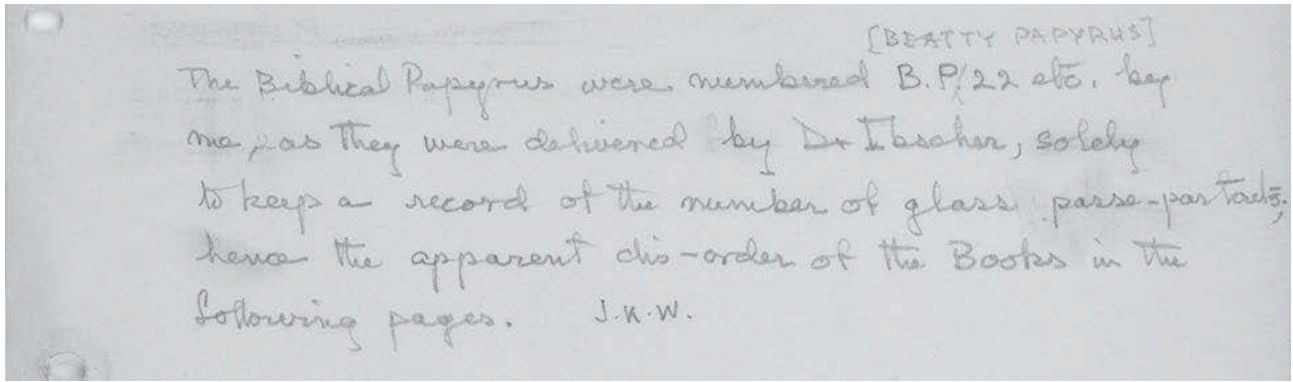 [BEATTY PAPYRUS]
The Biblical Papyrus were numbered B.P. 22 etc. by
me, as they were delivered by Dr Ibscher, solely
to keep a record of the number of glass passe-partouts;
hence the apparent dis-order of the Books in the
following pages. J.K.W.